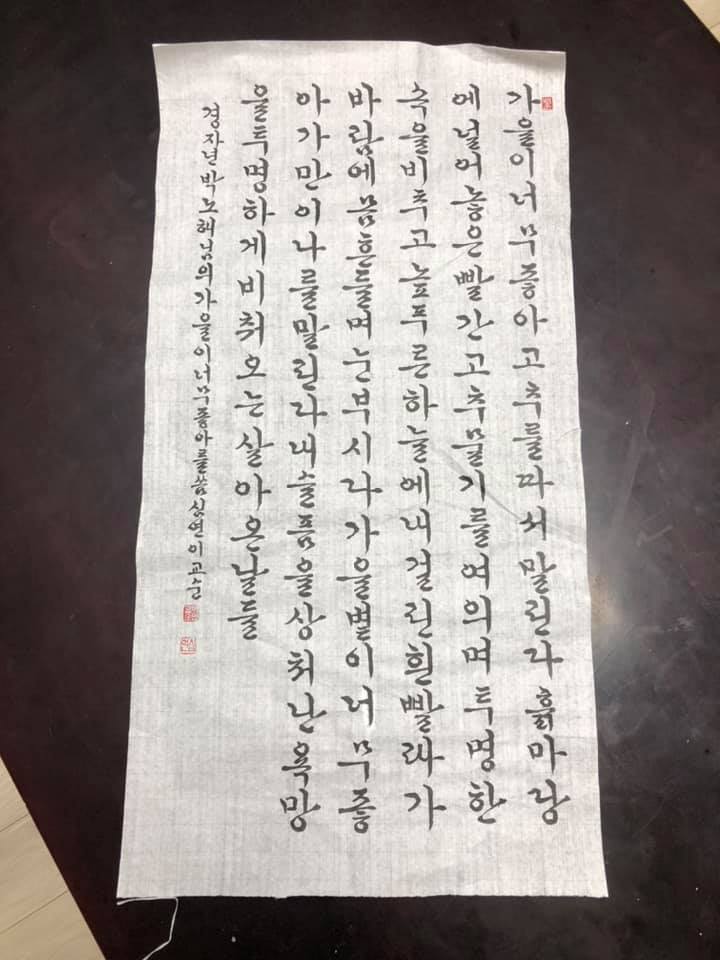 가을이너무좋아고추를따서말린다흙마당
에널어놓은빨간고추물기를여의며투명한
속을비추고높푸른하늘에내걸린흰빨래가
바람에몸흔들며눈부시다가을볕이너무좋
아가만이나를말린다내슬픔을상처난욕망
을투명하게비춰오는살아온날들
경자년박노해님의가을이너무좋아를씀심연이교순